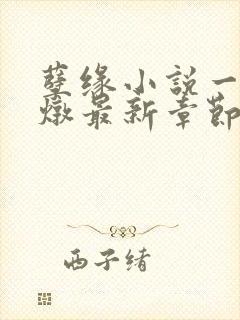 孽缘小说一
燉最新章節
西子绪